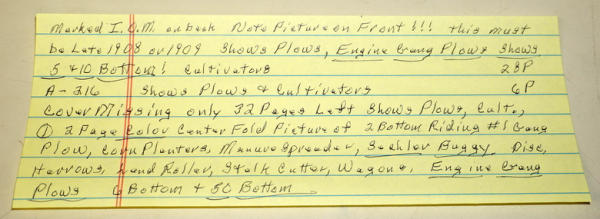 Marked I.O.M. on back Note Picture on Front !!! this must
be Late 1908 or 1909 Shows Plows, Engine Gang Plows Shows
5 & 10 Bottom! Cultivators 28P
A-316 Shows Plows & Cultivators 6P
Cover Missing only 32 Pages Left Shows Plows, Cult.,
① 2 Page Color Center Fold Picture of 2 Bottom Riding #1 Gang
Plow, Corn Planters, Manure Spreader, Sechler Buggy Disc,
Harrows, Land Roller, Stalk Cutter, Wagons, Engine Gang
Plows 6 Bottom + 50 Bottom